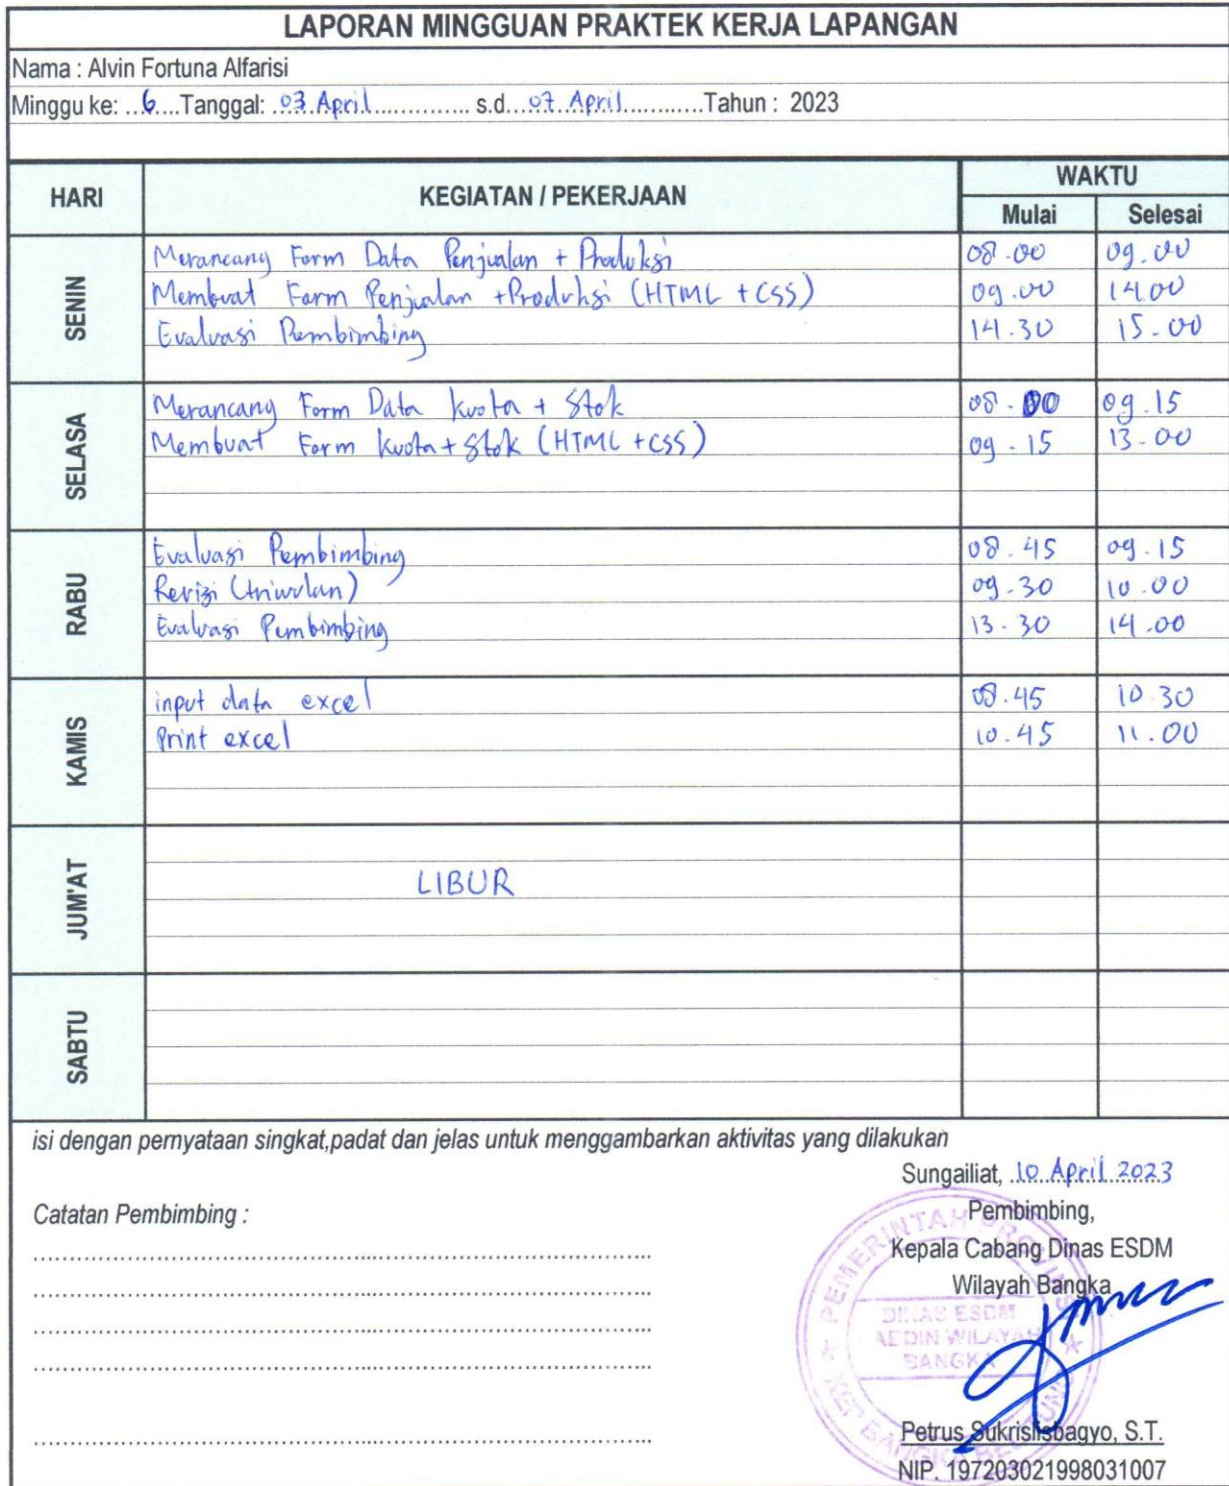 LAPORAN MINGGUAN PRAKTEK KERJA LAPANGAN
Nama : Alvin Fortuna Alfarisi
Minggu ke: ...6....Tanggal: .03 April............... s.d....07. April............Tahun : 2023
HARI KEGIATAN / PEKERJAAN WAKTU
Mulai Selesai
SENIN
Merancang Form Data Penjualan + Produksi 08.00 09.00
Membuat Form Penjualan + Produksi (HTML + CSS) 09.00 14.00
Evaluasi Pembimbing 14.30 15.00
SELASA
Merancang Form Data kuota + Stok 08.00 09.15
Membuat Form kuota + Stok (HTML + CSS) 09.15 13.00
RABU
Evaluasi Pembimbing 08.45 09.15
Revisi (triwulan) 09.30 10.00
Evaluasi Pembimbing 13.30 14.00
KAMIS
input data excel 08.45 10.30
Print excel 10.45 11.00
JUM'AT
LIBUR
SABTU
isi dengan pernyataan singkat,padat dan jelas untuk menggambarkan aktivitas yang dilakukan
Sungailiat, .10 April 2023
Catatan Pembimbing :
Pembimbing,
Kepala Cabang Dinas ESDM
Wilayah Bangka
PEMERINTAH PROVINSI
DINAS ESDM
WILAYAH
BANGKA
KEP BANGKA BELITUNG
Petrus Sukrislisbagyo, S.T.
NIP. 197203021998031007